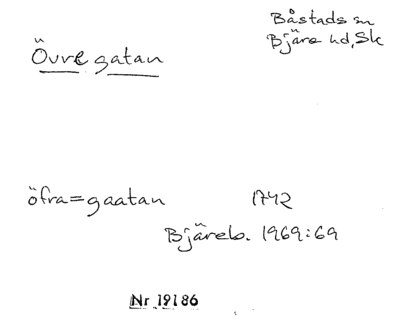 Båstads sn
Bjäre hd, Sk
Övre gatan
öfra=gaatan 1742
Bjäreb. 1969:69
Nr 19186